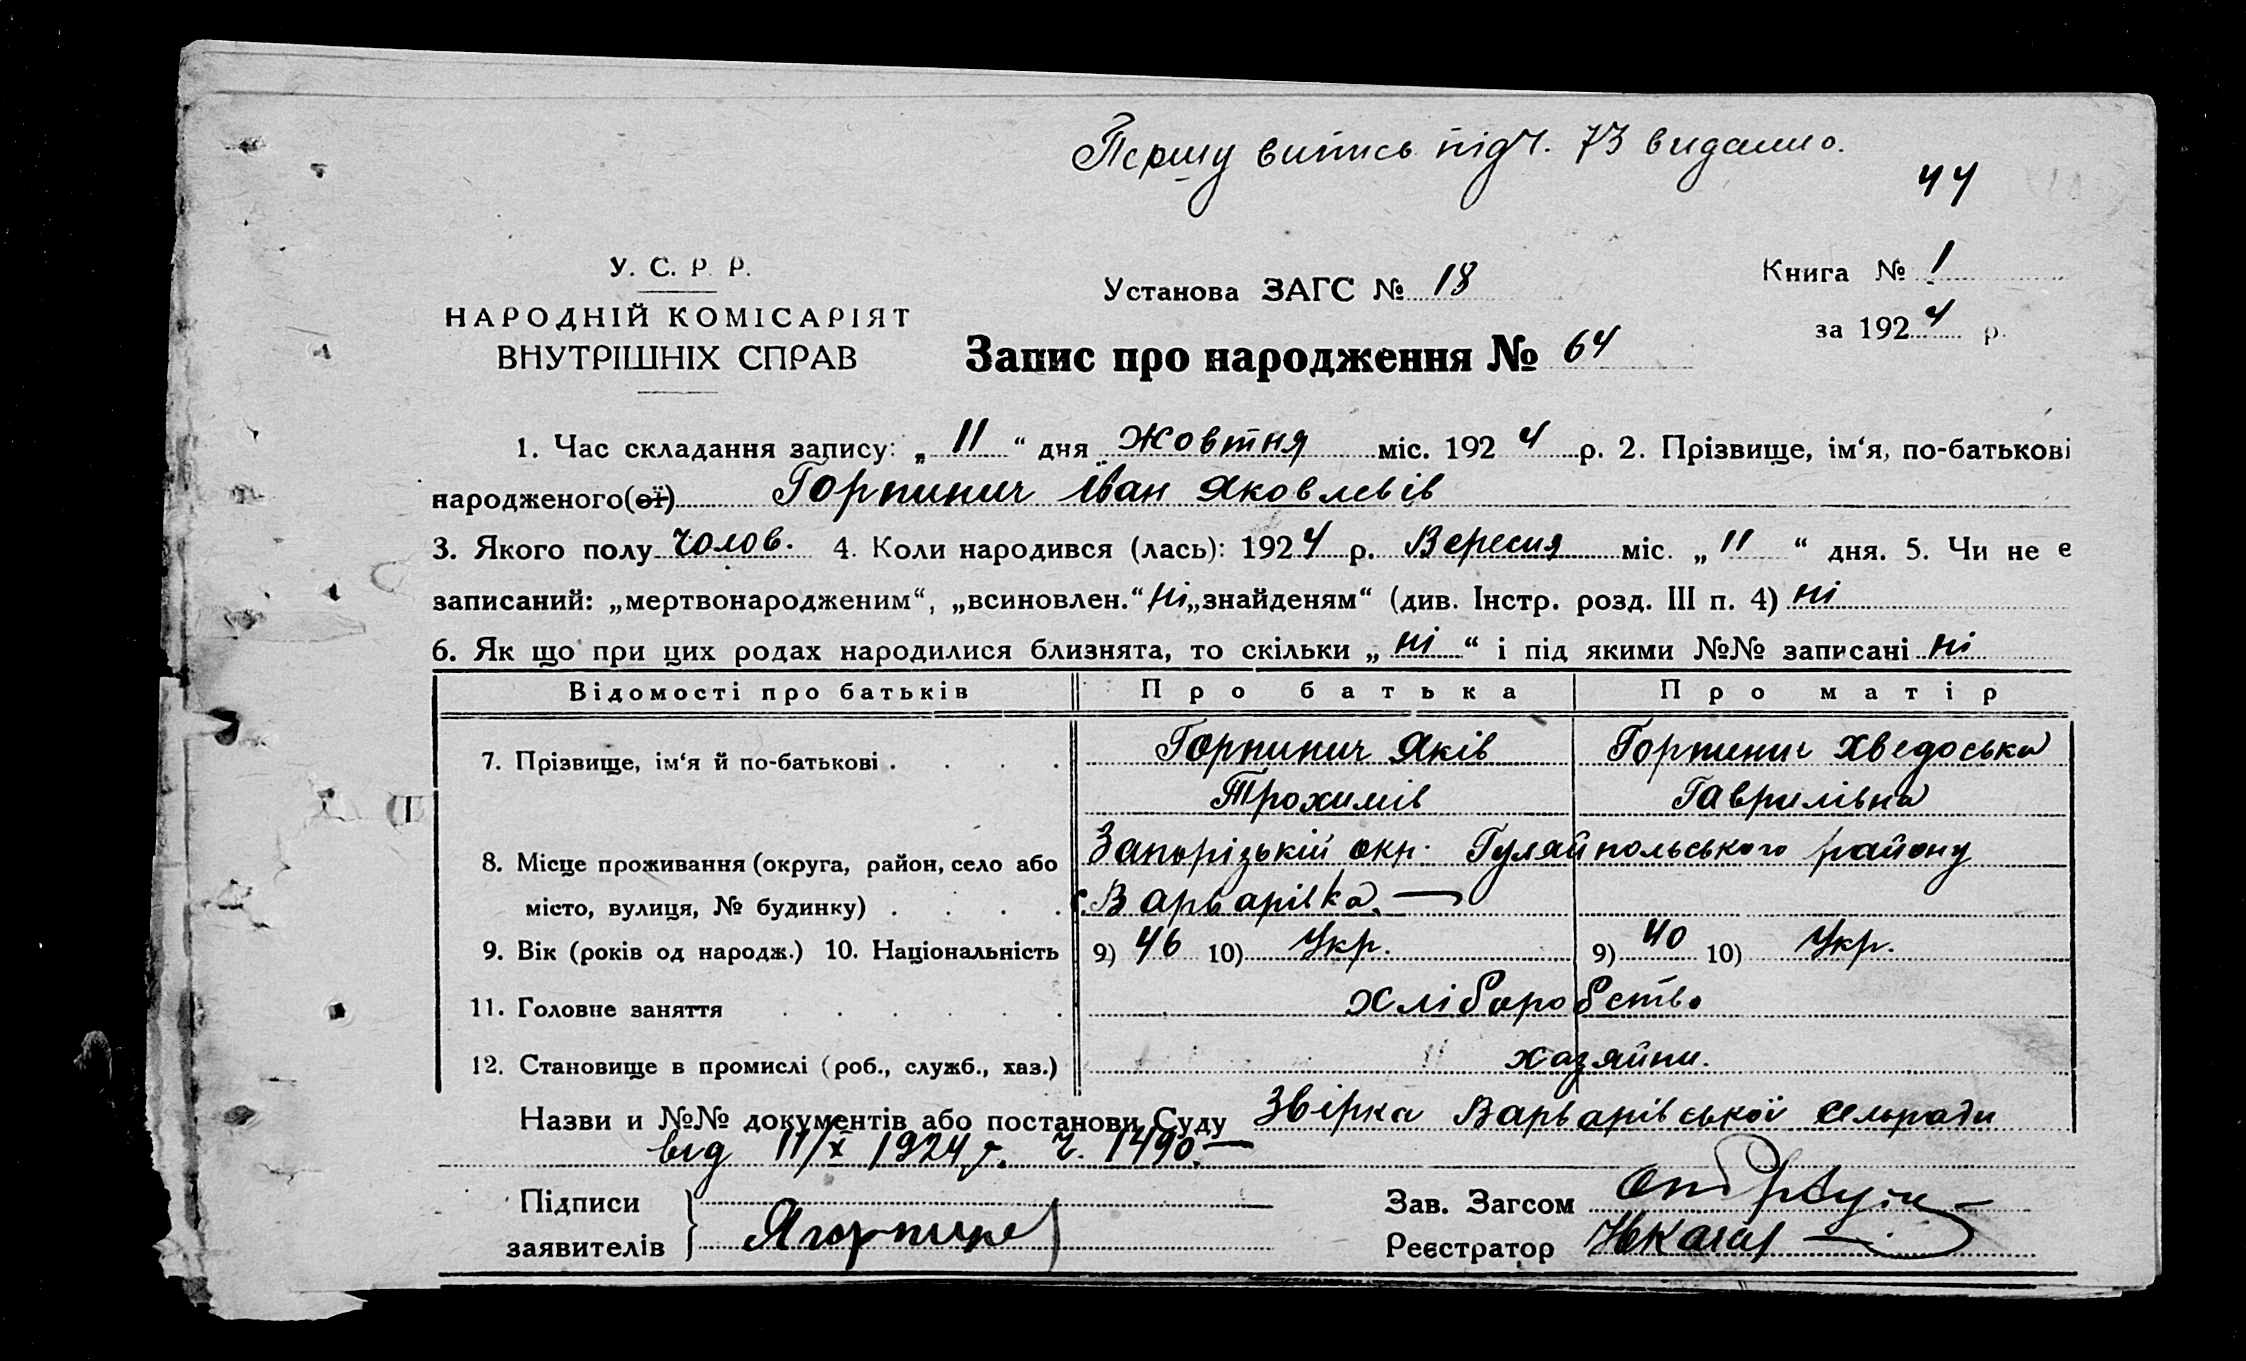 Першу випись під ч. 73 видано.
44
У. С. Р. Р.
НАРОДНІЙ КОМІСАРІЯТ
ВНУТРІШНІХ СПРАВ
Установа ЗАГС № 18
Книга № 1
за 1924 р.
Запис про народження № 64
1. Час складання запису: „ 11 “ дня Жовтня міс. 1924 р. 2. Прізвище, ім‘я, по-батькові
народженого(ої) Горпинич Іван Яковлевів
3. Якого полу чолов. 4. Коли народився (лась): 1924 р. Вересня міс. „ 11 “ дня. 5. Чи не є
записаний: „мертвонародженим“, „всиновлен.“ ні „знайденям“ (див. Інстр. розд. III п. 4) ні
6. Як що при цих родах народилися близнята, то скільки „ ні “ і під якими №№ записані ні
Відомості про батьків Про батька Про матір
7. Прізвище, ім‘я й по-батькові . . . . Горпинич Яків Горпинич Хведоська
Трохимів Гаврилівна
8. Місце проживання (округа, район, село або Запорізькій окр. Гуляйпольського району
місто, вулиця, № будинку) . . . . с. Варварівка. —
9. Вік (років од народж.) 10. Національність 9) 46 10) Укр. 9) 40 10) Укр.
11. Головне заняття . . . . . . хліборобство
12. Становище в промислі (роб., служб., хаз.) хазяйни.
Назви и №№ документів або постанови Суду Звірка Варварівської сельради
від 11/X 1924 р. ч. 1490. —
Підписи
заявителів
Я горпинич
Зав. Загсом
Реєстратор